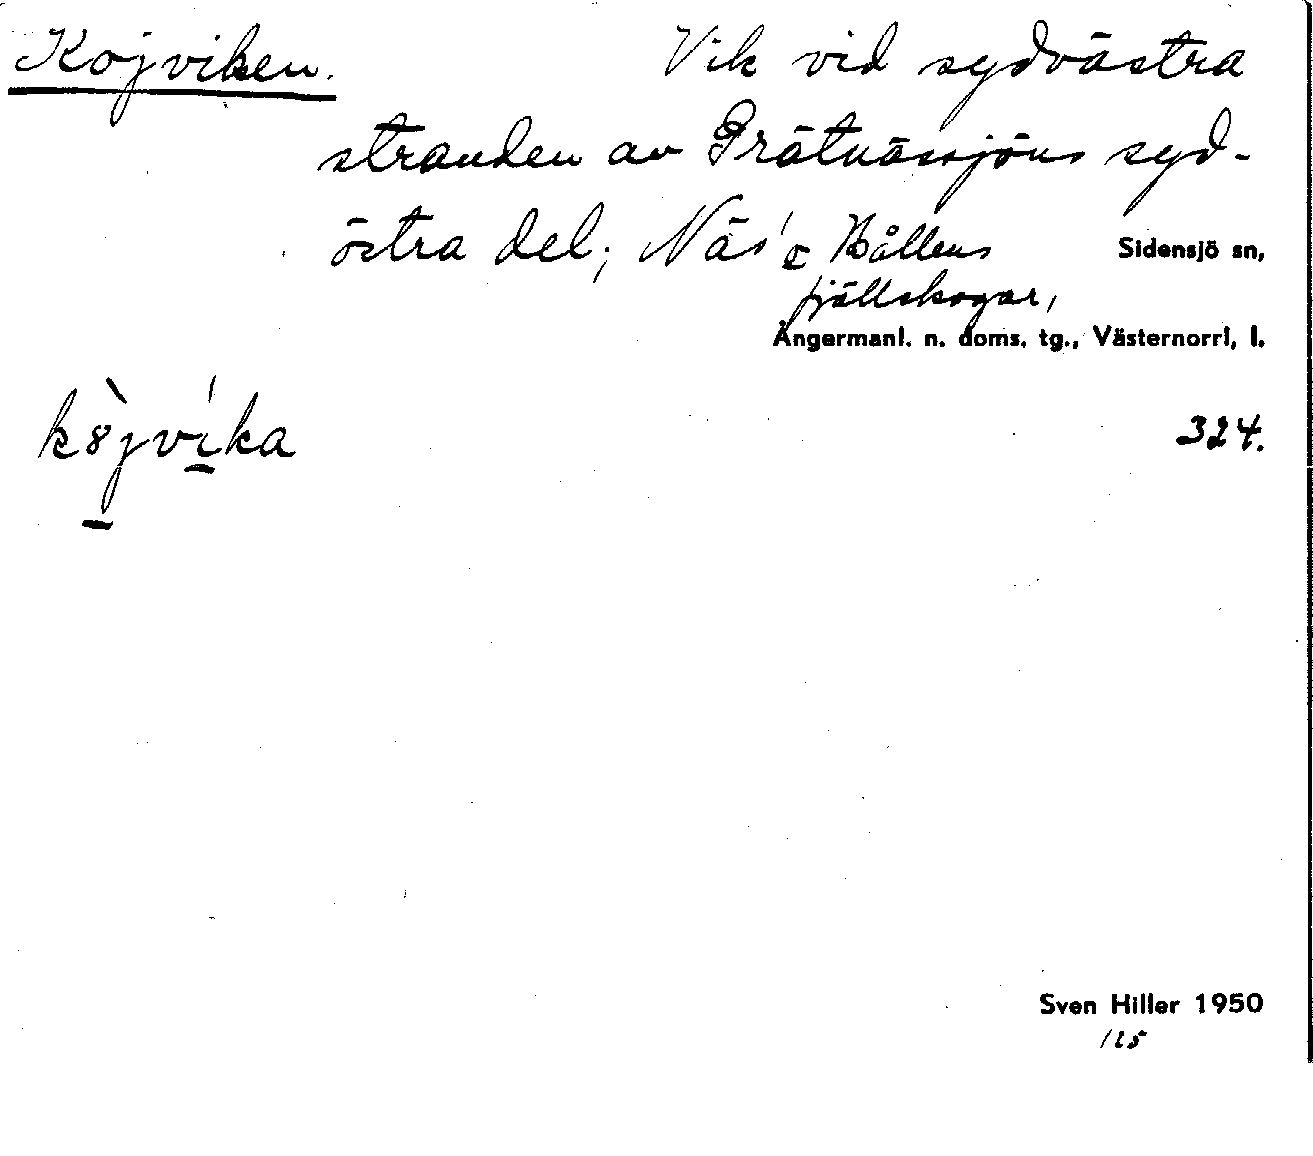 Kojviken. Vik vid sydvästra
stranden av Grätnässjöns syd-
östra del; Näs' o Bållens Sidensjö sn,
fjällskogar,
Ångermanl. n. doms. tg., Västernorrl. l.
k8̀jvíka 324.
Sven Hiller 1950
125